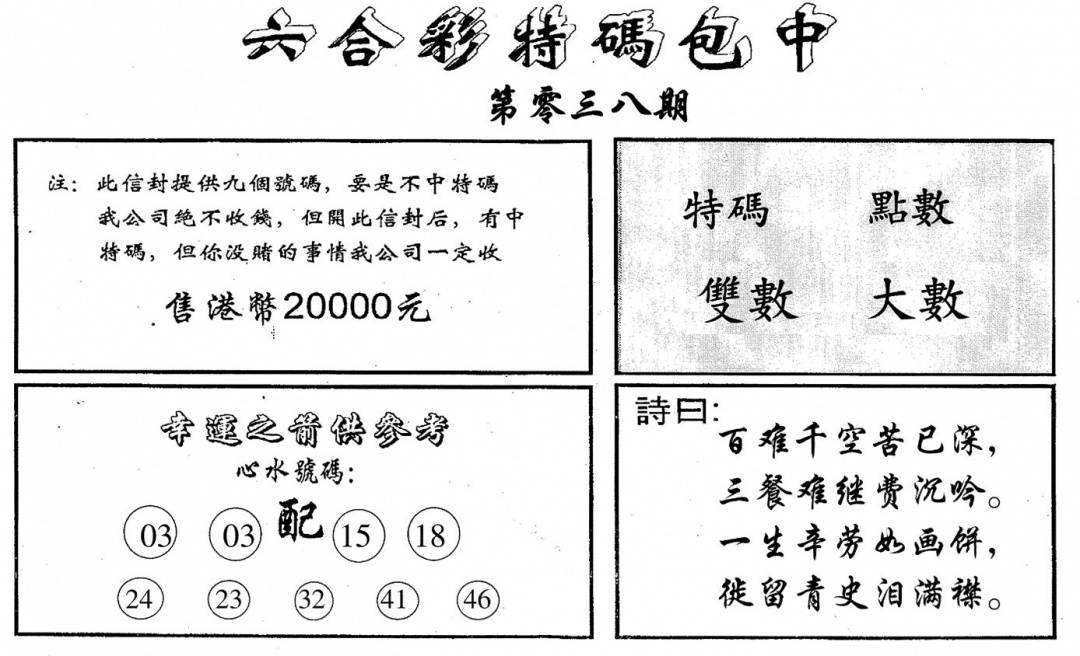 六合彩特碼包中
第零三八期
注：此信封提供九個號碼，要是不中特碼
我公司絕不收錢，但開此信封后，有中
特碼，但你没賭的事情我公司一定收
售港幣20000元
特碼 點數
雙數 大數
幸運之箭供參考
心水號碼：
03 03 配 15 18
24 23 32 41 46
詩曰：
百难千空苦已深，
三餐难继费沉吟。
一生辛劳如画饼，
徙留青史泪满襟。